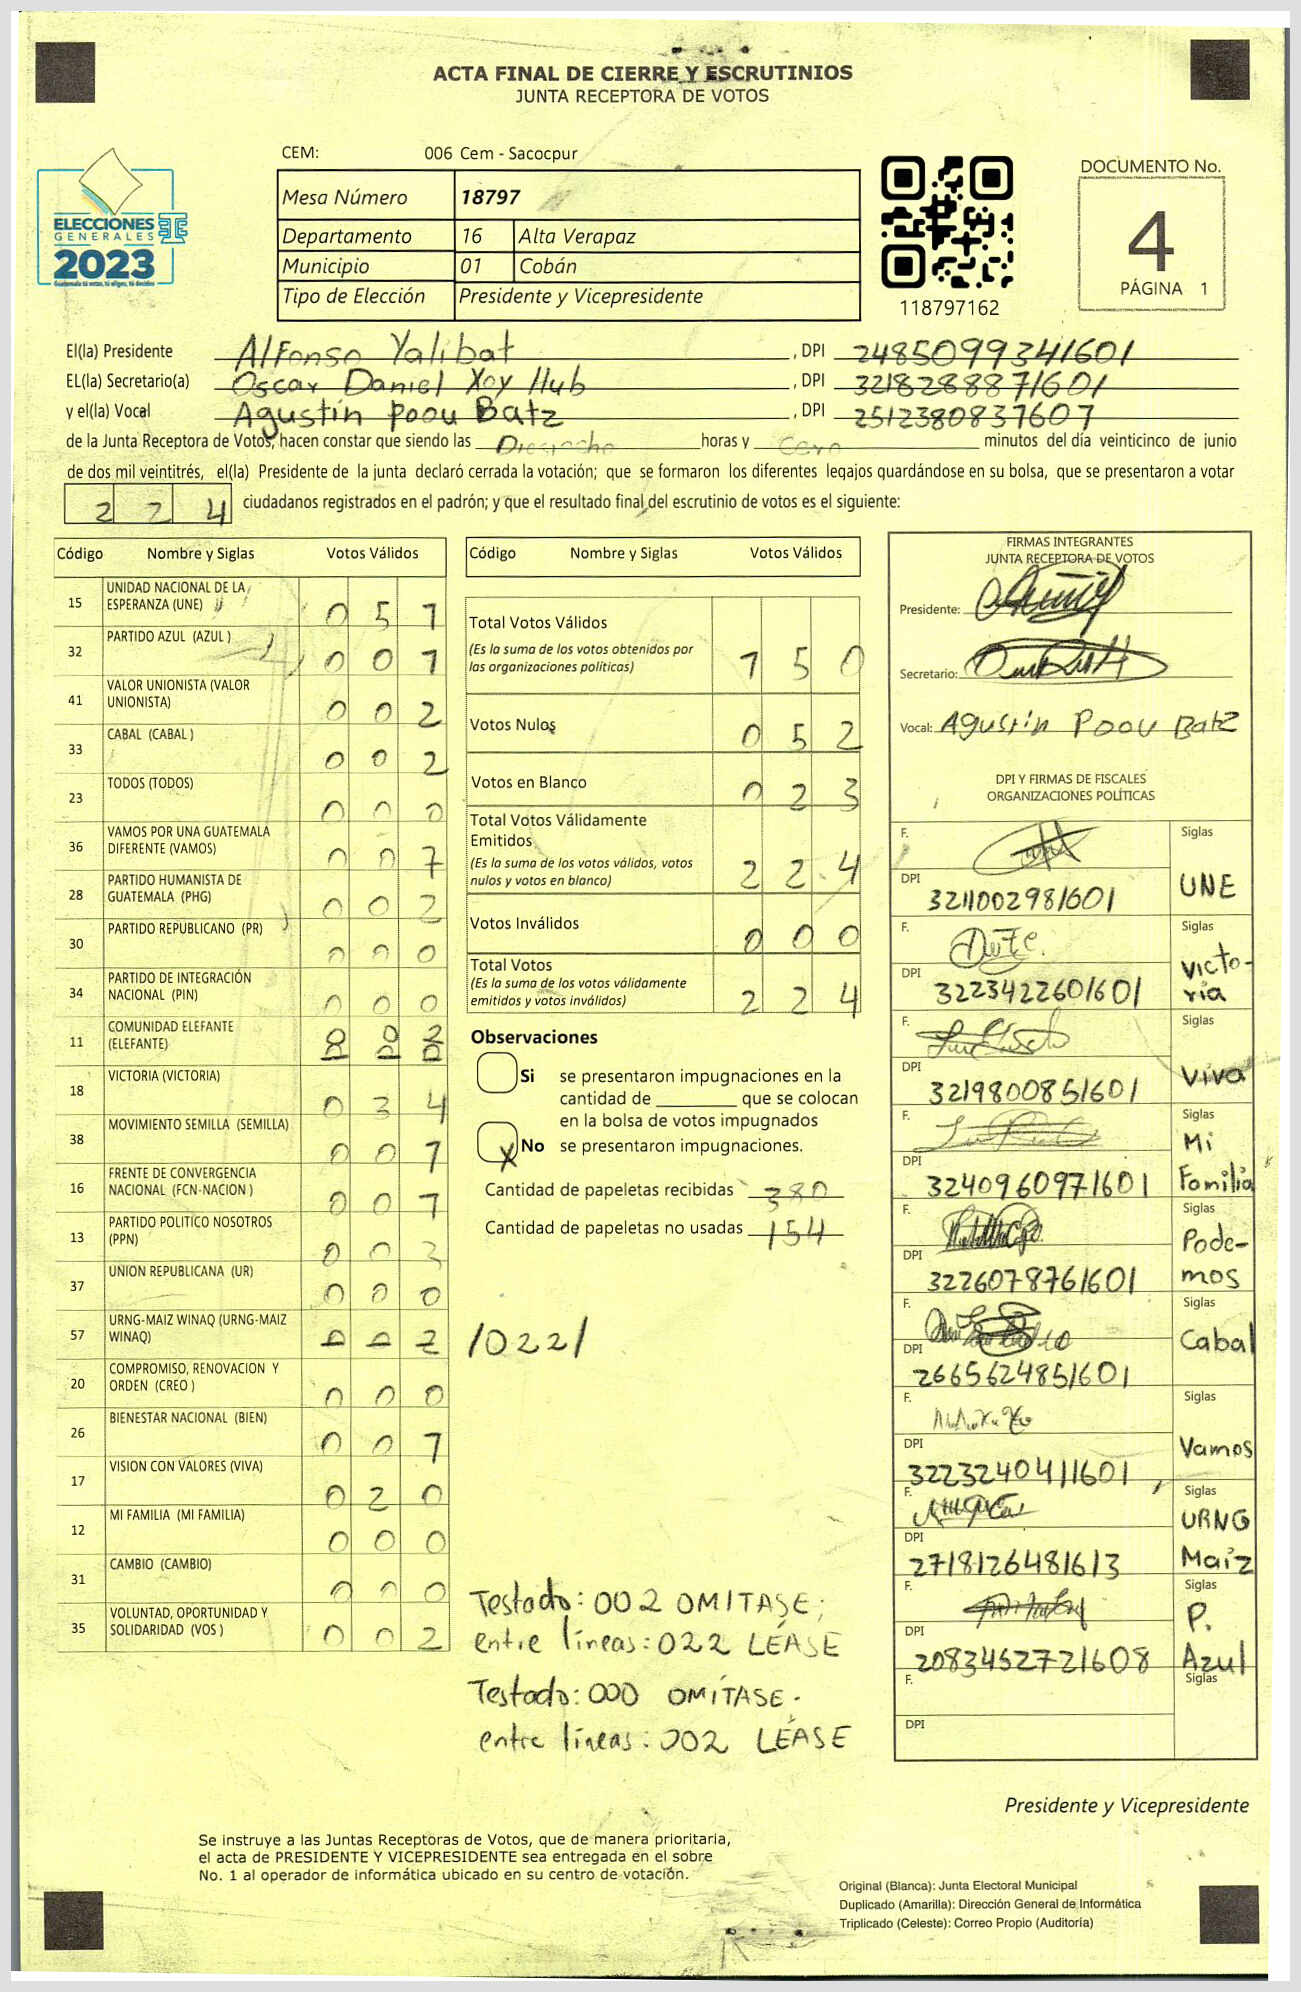 ACTA FINAL DE CIERRE Y ESCRUTINIOS
JUNTA RECEPTORA DE VOTOS
CEM: 006 Cem - Sacocpur
ELECCIONES
GENERALES
2023
Guatemala tú votas, tú eliges, tú decides
Mesa Número 18797
Departamento 16 Alta Verapaz
Municipio 01 Cobán
Tipo de Elección Presidente y Vicepresidente
118797162
DOCUMENTO No.
4
PÁGINA 1
El(la) Presidente Alfonso Yalibat , DPI 2485099341601
EL(la) Secretario(a) Oscar Daniel Xoy Hub , DPI 3218288871601
y el(la) Vocal Agustín Poou Batz , DPI 2512380837607
de la Junta Receptora de Votos, hacen constar que siendo las Dieciocho horas y Cero minutos del día veinticinco de junio
de dos mil veintitrés, el(la) Presidente de la junta declaró cerrada la votación; que se formaron los diferentes legajos quardándose en su bolsa, que se presentaron a votar
2 2 4 ciudadanos registrados en el padrón; y que el resultado final del escrutinio de votos es el siguiente:
Código Nombre y Siglas Votos Válidos
15 UNIDAD NACIONAL DE LA ESPERANZA (UNE) 0 5 1
32 PARTIDO AZUL (AZUL ) 0 0 1
41 VALOR UNIONISTA (VALOR UNIONISTA) 0 0 2
33 CABAL (CABAL ) 0 0 2
23 TODOS (TODOS) 0 0 0
36 VAMOS POR UNA GUATEMALA DIFERENTE (VAMOS) 0 0 7
28 PARTIDO HUMANISTA DE GUATEMALA (PHG) 0 0 2
30 PARTIDO REPUBLICANO (PR) 0 0 0
34 PARTIDO DE INTEGRACIÓN NACIONAL (PIN) 0 0 0
11 COMUNIDAD ELEFANTE (ELEFANTE) 0 0 2
18 VICTORIA (VICTORIA) 0 3 4
38 MOVIMIENTO SEMILLA (SEMILLA) 0 0 1
16 FRENTE DE CONVERGENCIA NACIONAL (FCN-NACION ) 0 0 1
13 PARTIDO POLITICO NOSOTROS (PPN) 0 0 3
37 UNION REPUBLICANA (UR) 0 0 0
57 URNG-MAIZ WINAQ (URNG-MAIZ WINAQ) 0 0 2 /022/
20 COMPROMISO, RENOVACION Y ORDEN (CREO ) 0 0 0
26 BIENESTAR NACIONAL (BIEN) 0 0 1
17 VISION CON VALORES (VIVA) 0 2 0
12 MI FAMILIA (MI FAMILIA) 0 0 0
31 CAMBIO (CAMBIO) 0 0 0
35 VOLUNTAD, OPORTUNIDAD Y SOLIDARIDAD (VOS ) 0 0 2
Código Nombre y Siglas Votos Válidos
Total Votos Válidos 1 5 0
(Es la suma de los votos obtenidos por
las organizaciones políticas)
Votos Nulos 0 5 2
Votos en Blanco 0 2 3
Total Votos Válidamente
Emitidos 2 2 4
(Es la suma de los votos válidos, votos
nulos y votos en blanco)
Votos Inválidos 0 0 0
Total Votos 2 2 4
(Es la suma de los votos válidamente
emitidos y votos inválidos)
Observaciones
Si se presentaron impugnaciones en la
cantidad de ________ que se colocan
en la bolsa de votos impugnados
X No se presentaron impugnaciones.
Cantidad de papeletas recibidas 380
Cantidad de papeletas no usadas 154
Testado: 002 OMITASE;
entre líneas: 022 LÉASE
Testado: 000 OMÍTASE.
entre líneas: 002 LÉASE
FIRMAS INTEGRANTES
JUNTA RECEPTORA DE VOTOS
Presidente:
Secretario:
Vocal: Agustín Poou Batz
DPI Y FIRMAS DE FISCALES
ORGANIZACIONES POLÍTICAS
F. Siglas
DPI 3211002981601 UNE
F. Siglas
DPI 3223422601601 Victo-
ria
F. Siglas
DPI 3219800851601 Viva
F. Siglas
DPI 3240960971601 Mi
Familia
F. Siglas
DPI 3226078761601 Pode-
mos
F. Siglas
DPI 2665624851601 Cabal
F. Siglas
DPI 3223240411601 Vamos
F. Siglas
DPI 2718126481613 URNG
Maíz
F. Siglas
DPI 2083452721608 P.
Azul
F. Siglas
DPI
Presidente y Vicepresidente
Se instruye a las Juntas Receptoras de Votos, que de manera prioritaria,
el acta de PRESIDENTE Y VICEPRESIDENTE sea entregada en el sobre
No. 1 al operador de informática ubicado en su centro de votación.
Original (Blanca): Junta Electoral Municipal
Duplicado (Amarilla): Dirección General de Informática
Triplicado (Celeste): Correo Propio (Auditoría)